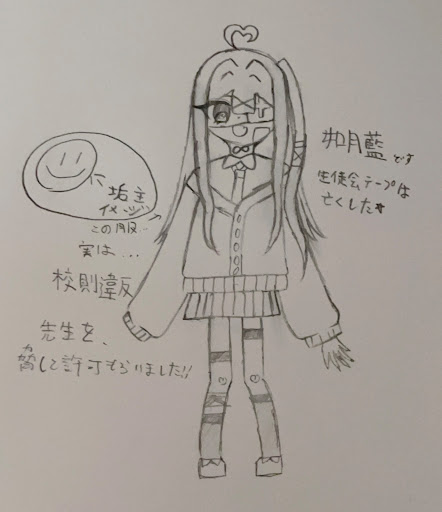 如月藍です
生徒会テープは
亡くしたす
垢主
イメージ
この服…
実は…
校則違反
先生を、
脅して許可もらいました!!